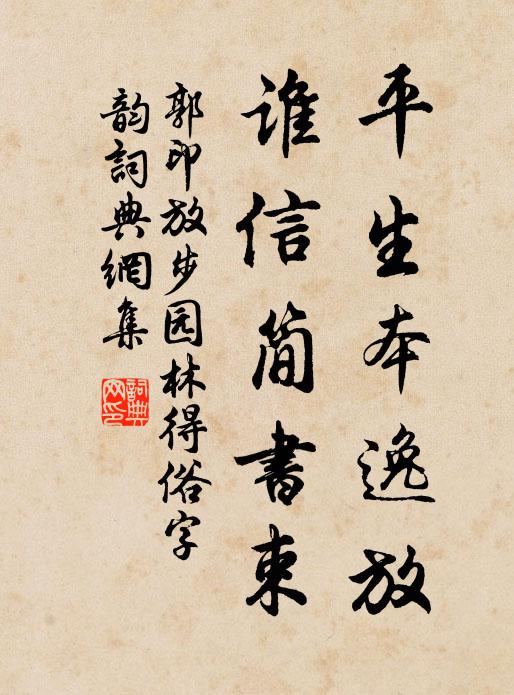 平生本逸放
谁信简書束
郭印放步园林得俗字
韵詞典網集
詞典網印